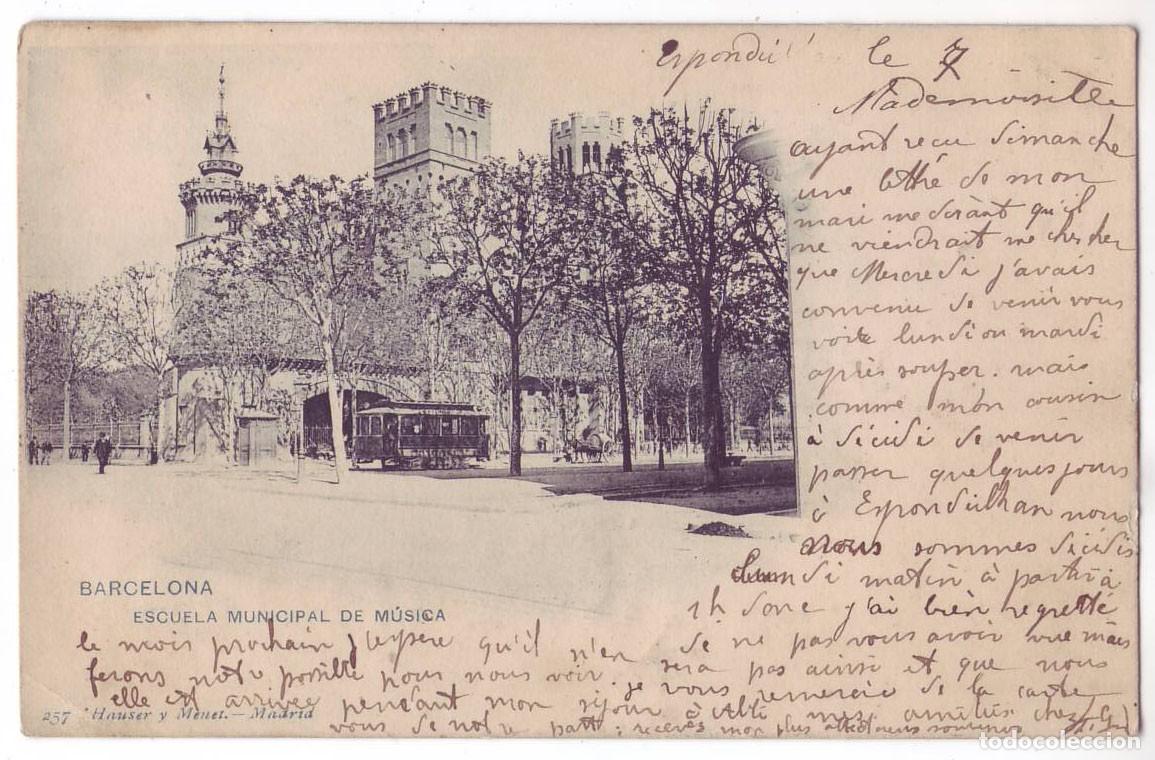 le 7
Mademoiselle
ayant recu dimanche
une lettre de mon
mari me disant qu'il
ne viendrait me chercher
que Mercredi j'avais
convenu de venir vous
voir lundi ou mardi
après souper. mais
comme mon cousin
à décidé de venir
passer quelques jours
à Espondeilhan nous
nous sommes décidés
lundi matin à partir à
1h donc j'ai bien regretté
de ne pas vous avoir vue mais
le mois prochain j'espere qu'il n'en sera pas ainsi et que nous
ferons notre possible pour nous voir. je vous remercie de la carte
elle est arrivée pendant mon séjour à mes amitiés chez
vous de notre part; recevez mon plus
BARCELONA
ESCUELA MUNICIPAL DE MÚSICA
257 Hauser y Menet.—Madrid
todocoleccion